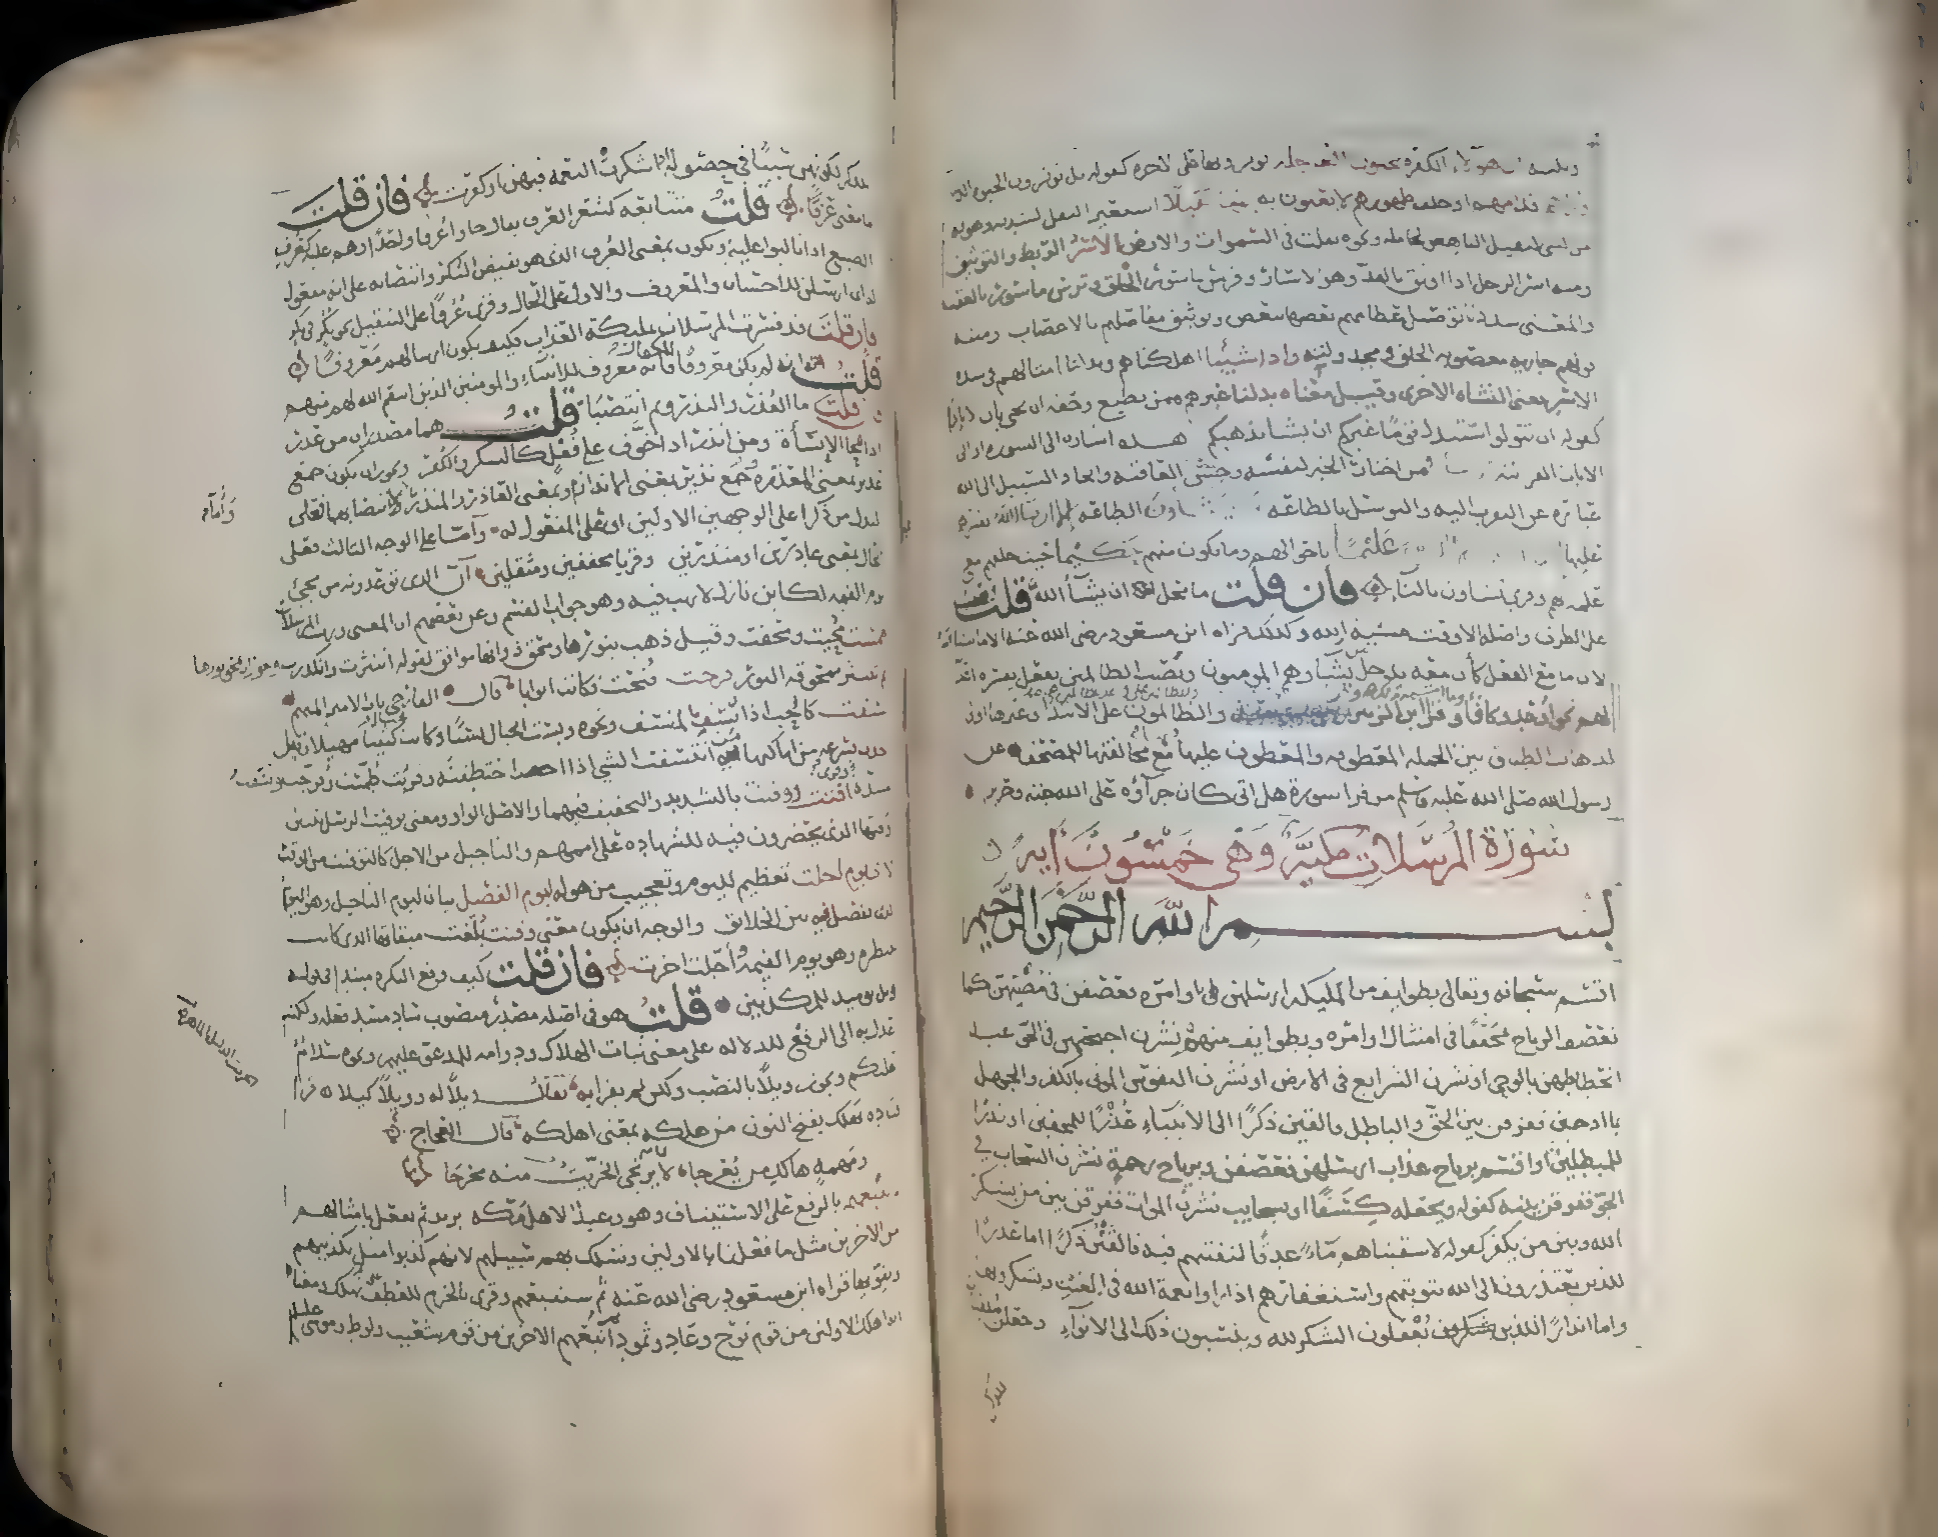 ان هولاء الكفره يحبون العاجله يوثرونها على الاخره كقوله بل توثرون الحيوه الدنيا
قدامهم او خلف ظهورهم لا يعبون به يوما ثقيلا استعير الثقل لشدته وهوله
من الشي الثقيل الباهض لحامله ونحوه ثقلت في السموات والارض الاسر الربط والتوثيق
ومنه اسر الرجل اذا اوثق بالقد وهو الاسار وفرس ماسور الخلق وترس ماسور بالعقب
والمعنى شددنا توصيل عظامهم بعضها ببعض وتوثيق مفاصلهم بالاعصاب ومنه
قولهم جاريه معصوبه الخلق ومجدولته واذا شئنا اهلكناهم وبدلنا امثالهم في شده
الاسر يعني النشاه الاخرى وقيل معناه بدلنا غيرهم ممن يطيع وحقه ان يجي بان لا باذا
كقوله ان تتولوا يستبدل قوما غيركم ان يشا يذهبكم هذه اشاره الى السوره او الى
الايات القريبه فمن اختار الخير لنفسه وحسن العاقبه واتخاذ السبيل الى الله
عباره عن التقرب اليه والتوسل بالطاعه وما يشاون الطاعه الا ان يشا الله بقسرهم
عليها عليما باحوالهم وما يكون منهم حكيما حيث خلقهم مع
علمه بهم وقري تشاون بالتاء فان قلت ما محل ان يشا الله قلت النصب
على الظرف واصله الا وقت مشيه الله وكذلك قراه ابن مسعود رضي الله عنه الا ما يشا الله
لان ما مع الفعل كان معه يدخل من يشا وهم المومنون ونصب الظالمين بفعل يفسره اعد
لهم نحو اوعد وكافا وقرا ابن الزبير والظالمون على الابتدا وغيرها اولى
لذهاب الطباق بين الجمله المعطوفه والمعطوف عليها مع مخالفتها للمصحف عن
رسول الله صلى الله عليه وسلم من قرا سورة هل اتى كان جزآؤه على الله جنه وحرير
سورة المرسلات مكية وهي خمسون اية
بسم الله الرحمن الرحيم
اقسم سبحانه وتعالى بطوايف من المليكه ارسلهن باوامره فعصفن في مضيهن كما
تعصف الرياح تخففا في امتثال اوامره وبطوايف منهم نشرن اجنحتهن في الجو عند
انحطاطهن بالوحي او نشرن الشرايع في الارض او نشرن النفوس الموتى بالكفر والجهل
بما اوحين ففرقن بين الحق والباطل فالقين ذكرا الى الانبياء عذرا للمحقين او نذرا
للمبطلين او اقسم برياح عذاب ارسلهن فعصفن وبرياح رحمة نشرن السحاب في
الجو ففرقن بينه كقوله ويجعله كسفا او بسحايب نشرن الموات ففرقن بين من يشكر
الله وبين من يكفر كقوله لاسقيناهم ماء غدقا لنفتنهم فيه فالقين ذكرا اما عذرا
للذين يعتذرون الى الله بتوبتهم واستغفارهم اذا راوا نعمة الله في الغيث ويشكرونها
واما انذارا للذين يغفلون الشكر لله وينسبون ذلك الى الانواء وجعلن ملقيات
للذكر
للذكر لكونهن سببا في حصوله اذا شكرت النعمه فيهن او كفرت فان قلت
ما معنى عرفا قلت متتابعه كشعر العرف يقال جاوا عرفا واحدا وهم عليه كعرف
الضبع اذا تالبوا عليه ويكون بمعنى العرف الذي هو نقيض النكر وانتصابه على انه مفعول
له اي ارسلن للاحسان والمعروف والاول على الحال وقري عرفا على التثقيل نحو نكر في نكر
فان قلت قد فسرت المرسلات بمليكة العذاب فكيف يكون ارسالهم معروفا
قلت ان لم يكن معروفا للكفار فانه معروف للانبياء والمومنين الذين انتقم الله لهم منهم
فان قلت ما العذر والنذر وبم انتصبا قلت هما مصدران من عذر
اذا محا الاساة ومن انذر اذا خوف على فعل كالشكر والكفر ويجوز ان يكون جمع
عذير بمعنى المعذره وجمع نذير بمعنى الانذار او بمعنى العاذر والمنذر وانتصابهما على
البدل من ذكرا على الوجهين الاولين او على المفعول له وآما على الوجه الثالث فعلى
الحال بمعنى عاذرين او منذرين وقريا مخففين ومثقلين ان الذي توعدونه من مجي
يوم القيمه لكاين نازل لا ريب فيه وهو جواب القسم وعن بعضهم ان المعنى ورب المرسلات
طمست محيت ومحقت وقيل ذهب بنورها ومحق ذواتها موافق لقوله انتثرت وانكدرت ويجوز ان يمحق نورها
ثم تنتثر ممحوقه النور فرجت فتحت فكانت ابوابا قال الفارجي باب الامير المبهم
نسفت كالحب اذا نسف بالمنسف ونحوه وبست الجبال بسا وكانت الجبال كثيبا مهيلا وقيل
اخذت بسرعه من اماكنها من انتسفت الشي اذا اختطفته وقريت طمست وفرجت ونسفت
مشدده اقتت ووقتت بالتشديد والتخفيف فيهما والاصل الواو ومعنى توقيت الرسل تبيين
وقتها الذي يحضرون فيه للشهاده على اممهم والتاجيل من الاجل كالتوقيت من الوقت
لاي يوم اجلت تعظيم لليوم وتعجيب من هوله ليوم الفصل بيان ليوم التاجيل وهو اليوم
الذي يفصل فيه بين الخلائق والوجه ان يكون معنى وقتت بلغت ميقاتها الذي كانت
تنتظره وهو يوم القيمه واجلت اخرت فان قلت كيف وقع النكره مبتدا في قوله
ويل يوميذ للمكذبين قلت هو في اصله مصدر منصوب ساد مسد فعله ولكنه
عدل به الى الرفع للدلاله على معنى ثبات الهلاك ودوامه للمدعو عليهم ونحوه سلام
عليكم ويجوز ويلا بالنصب ولكن لم يقرا به يقال ويلا له وويلا كيلا قرا
قتاده نهلك بفتح النون من هلكه بمعنى اهلكه قال العجاج
ومهمه هالك من تعرجا
نتبعهم بالرفع على الاستيناف وهو وعيد لاهل مكه يريد ثم نفعل بامثالهم
من الاخرين مثل ما فعلنا بالاولين ونسلك بهم سبيلهم لانهم كذبوا مثل تكذيبهم
ويقويها قراه ابن مسعود رضي الله عنه ثم سنتبعهم وقري بالجزم للعطف على نهلك ومعناه
انه اهلك الاولين من قوم نوح وعاد وثمود ثم اتبعهم الاخرين من قوم شعيب ولوط وموسى